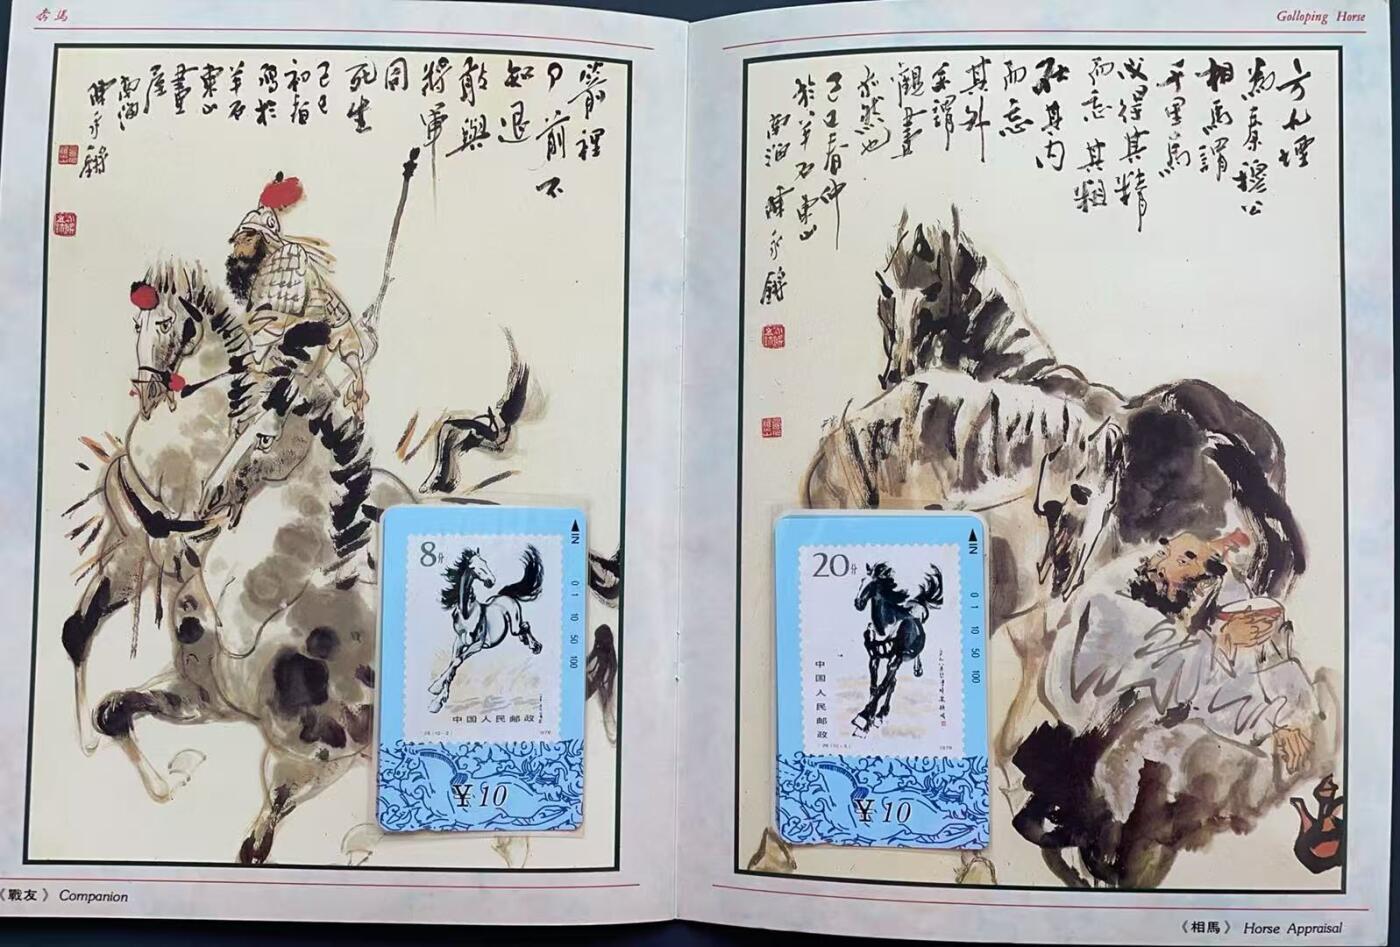 奔馬
Golloping Horse
箭裡
刀前不
知退
敢與
將軍
同
死生
己巳
初
寫於
羊石
東山
畫
屋
南海
陳永鏘
方九堙
為秦穆公
相馬謂
千里馬
必得其精
而忘其粗
在其內
而忘
其外
吾謂
觀畫
亦然也
己巳春仲
於羊石東山
南海陳永鏘
8分
IN
0 1 10 50 100
中国人民邮政
1978
¥10
20分
IN
0 1 10 50 100
中国人民邮政
1978
¥10
《戰友》 Companion
《相馬》 Horse Appraisal